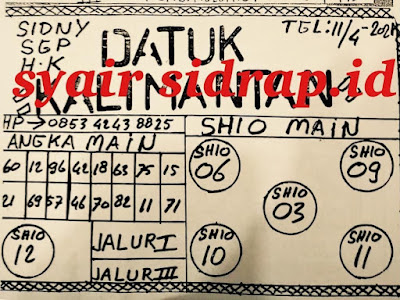 SIDNY
SGP
H.K
TEL:11/4-2021
DATUK
KALIMANTAN
syair sidrap.id
HP → 0853 4243 8825
SHIO MAIN
ANGKA MAIN
60 12 96 42 18 63 75 15
21 69 57 46 70 82 11 71
SHIO 06
SHIO 09
SHIO 03
SHIO 12
JALUR I
JALUR III
SHIO 10
SHIO 11